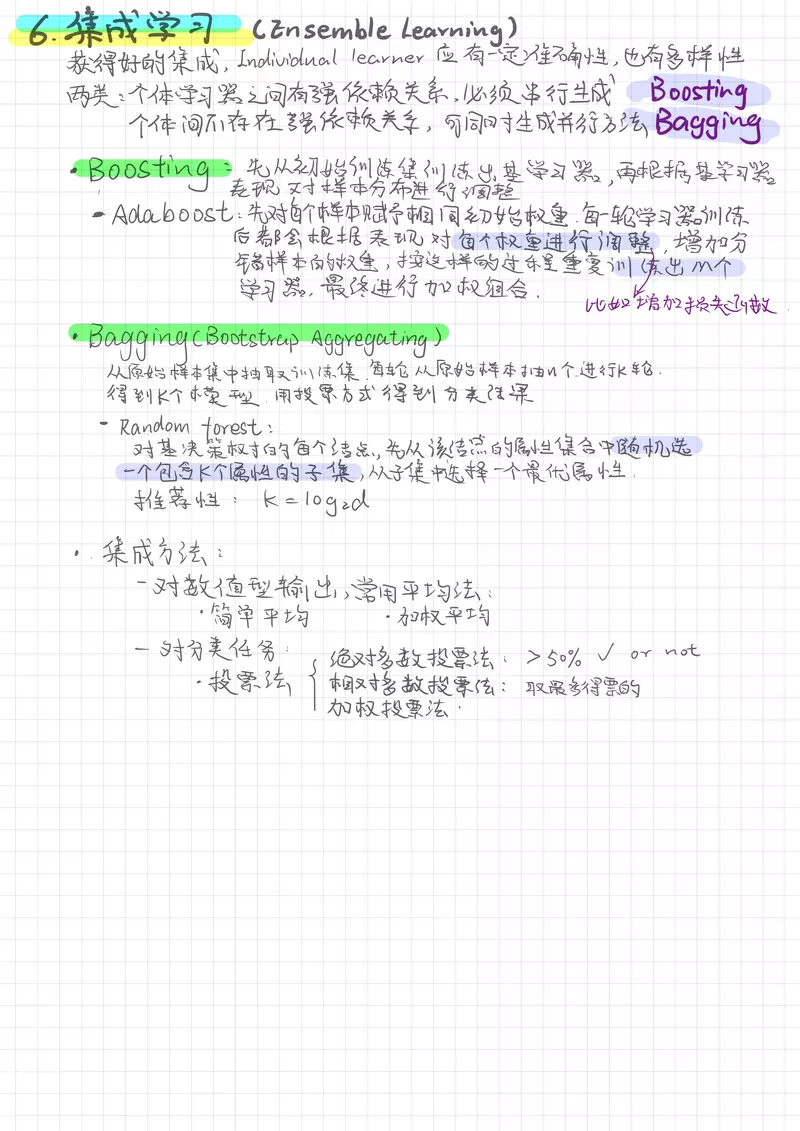 6. 集成学习 (Ensemble Learning)
获得好的集成, Individual learner 应有一定准确性, 也有多样性
两类: 个体学习器之间有强依赖关系, 必须串行生成 Boosting
个体间不存在强依赖关系, 可同时生成并行方法 Bagging
• Boosting: 先从初始训练集训练出基学习器, 再根据基学习器
表现对样本分布进行调整
- Adaboost: 先对每个样本赋予相同初始权重. 每一轮学习器训练
后都会根据表现对每个权重进行调整, 增加分
错样本的权重, 按这样的过程重复训练出m个
学习器, 最终进行加权组合.
比如增加损失函数
• Bagging (Bootstrap Aggregating)
从原始样本集中抽取训练集. 每轮从原始样本抽n个. 进行K轮.
得到K个模型. 用投票方式得到分类结果
- Random forest:
对基决策树的每个结点, 先从该结点的属性集合中随机选
一个包含K个属性的子集, 从子集中选择一个最优属性.
推荐性: K = log₂d
• 集成方法:
- 对数值型输出, 常用平均法:
• 简单平均 • 加权平均
- 对分类任务:
绝对多数投票法: >50% ✓ or not
• 投票法 { 相对多数投票法: 取最多得票的
加权投票法.